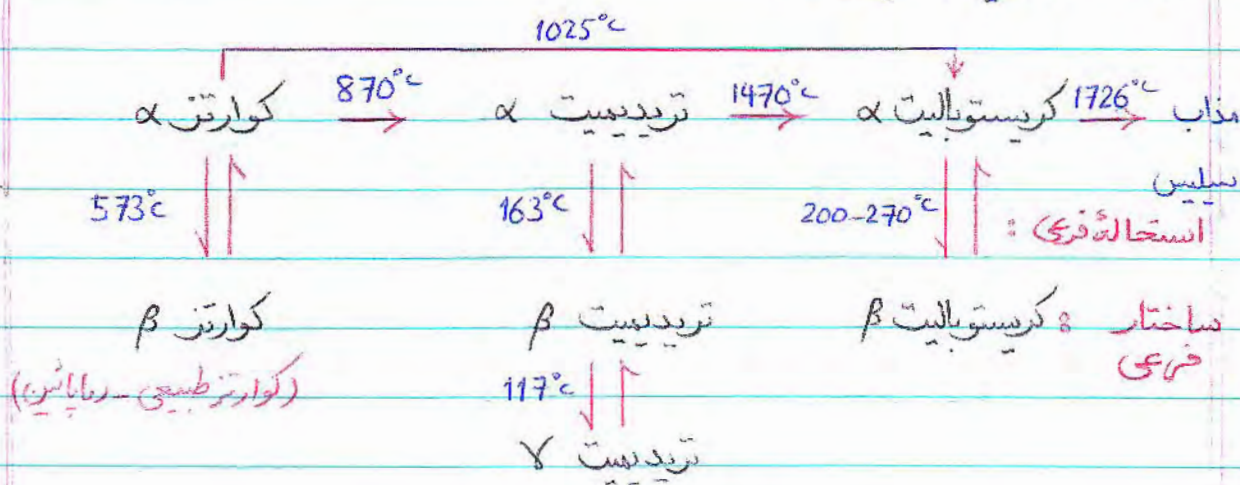 1025°c
کوارتز α 870°c تریدیمیت α 1470°c کریستوبالیت α 1726°c مذاب
سیلیس
573°c 163°c 200-270°c استحالهٔ فرعی :
کوارتز β تریدیمیت β کریستوبالیت β : ساختار
فرعی
(کوارتز طبیعی - دما پائین)
117°c
تریدیمیت γ